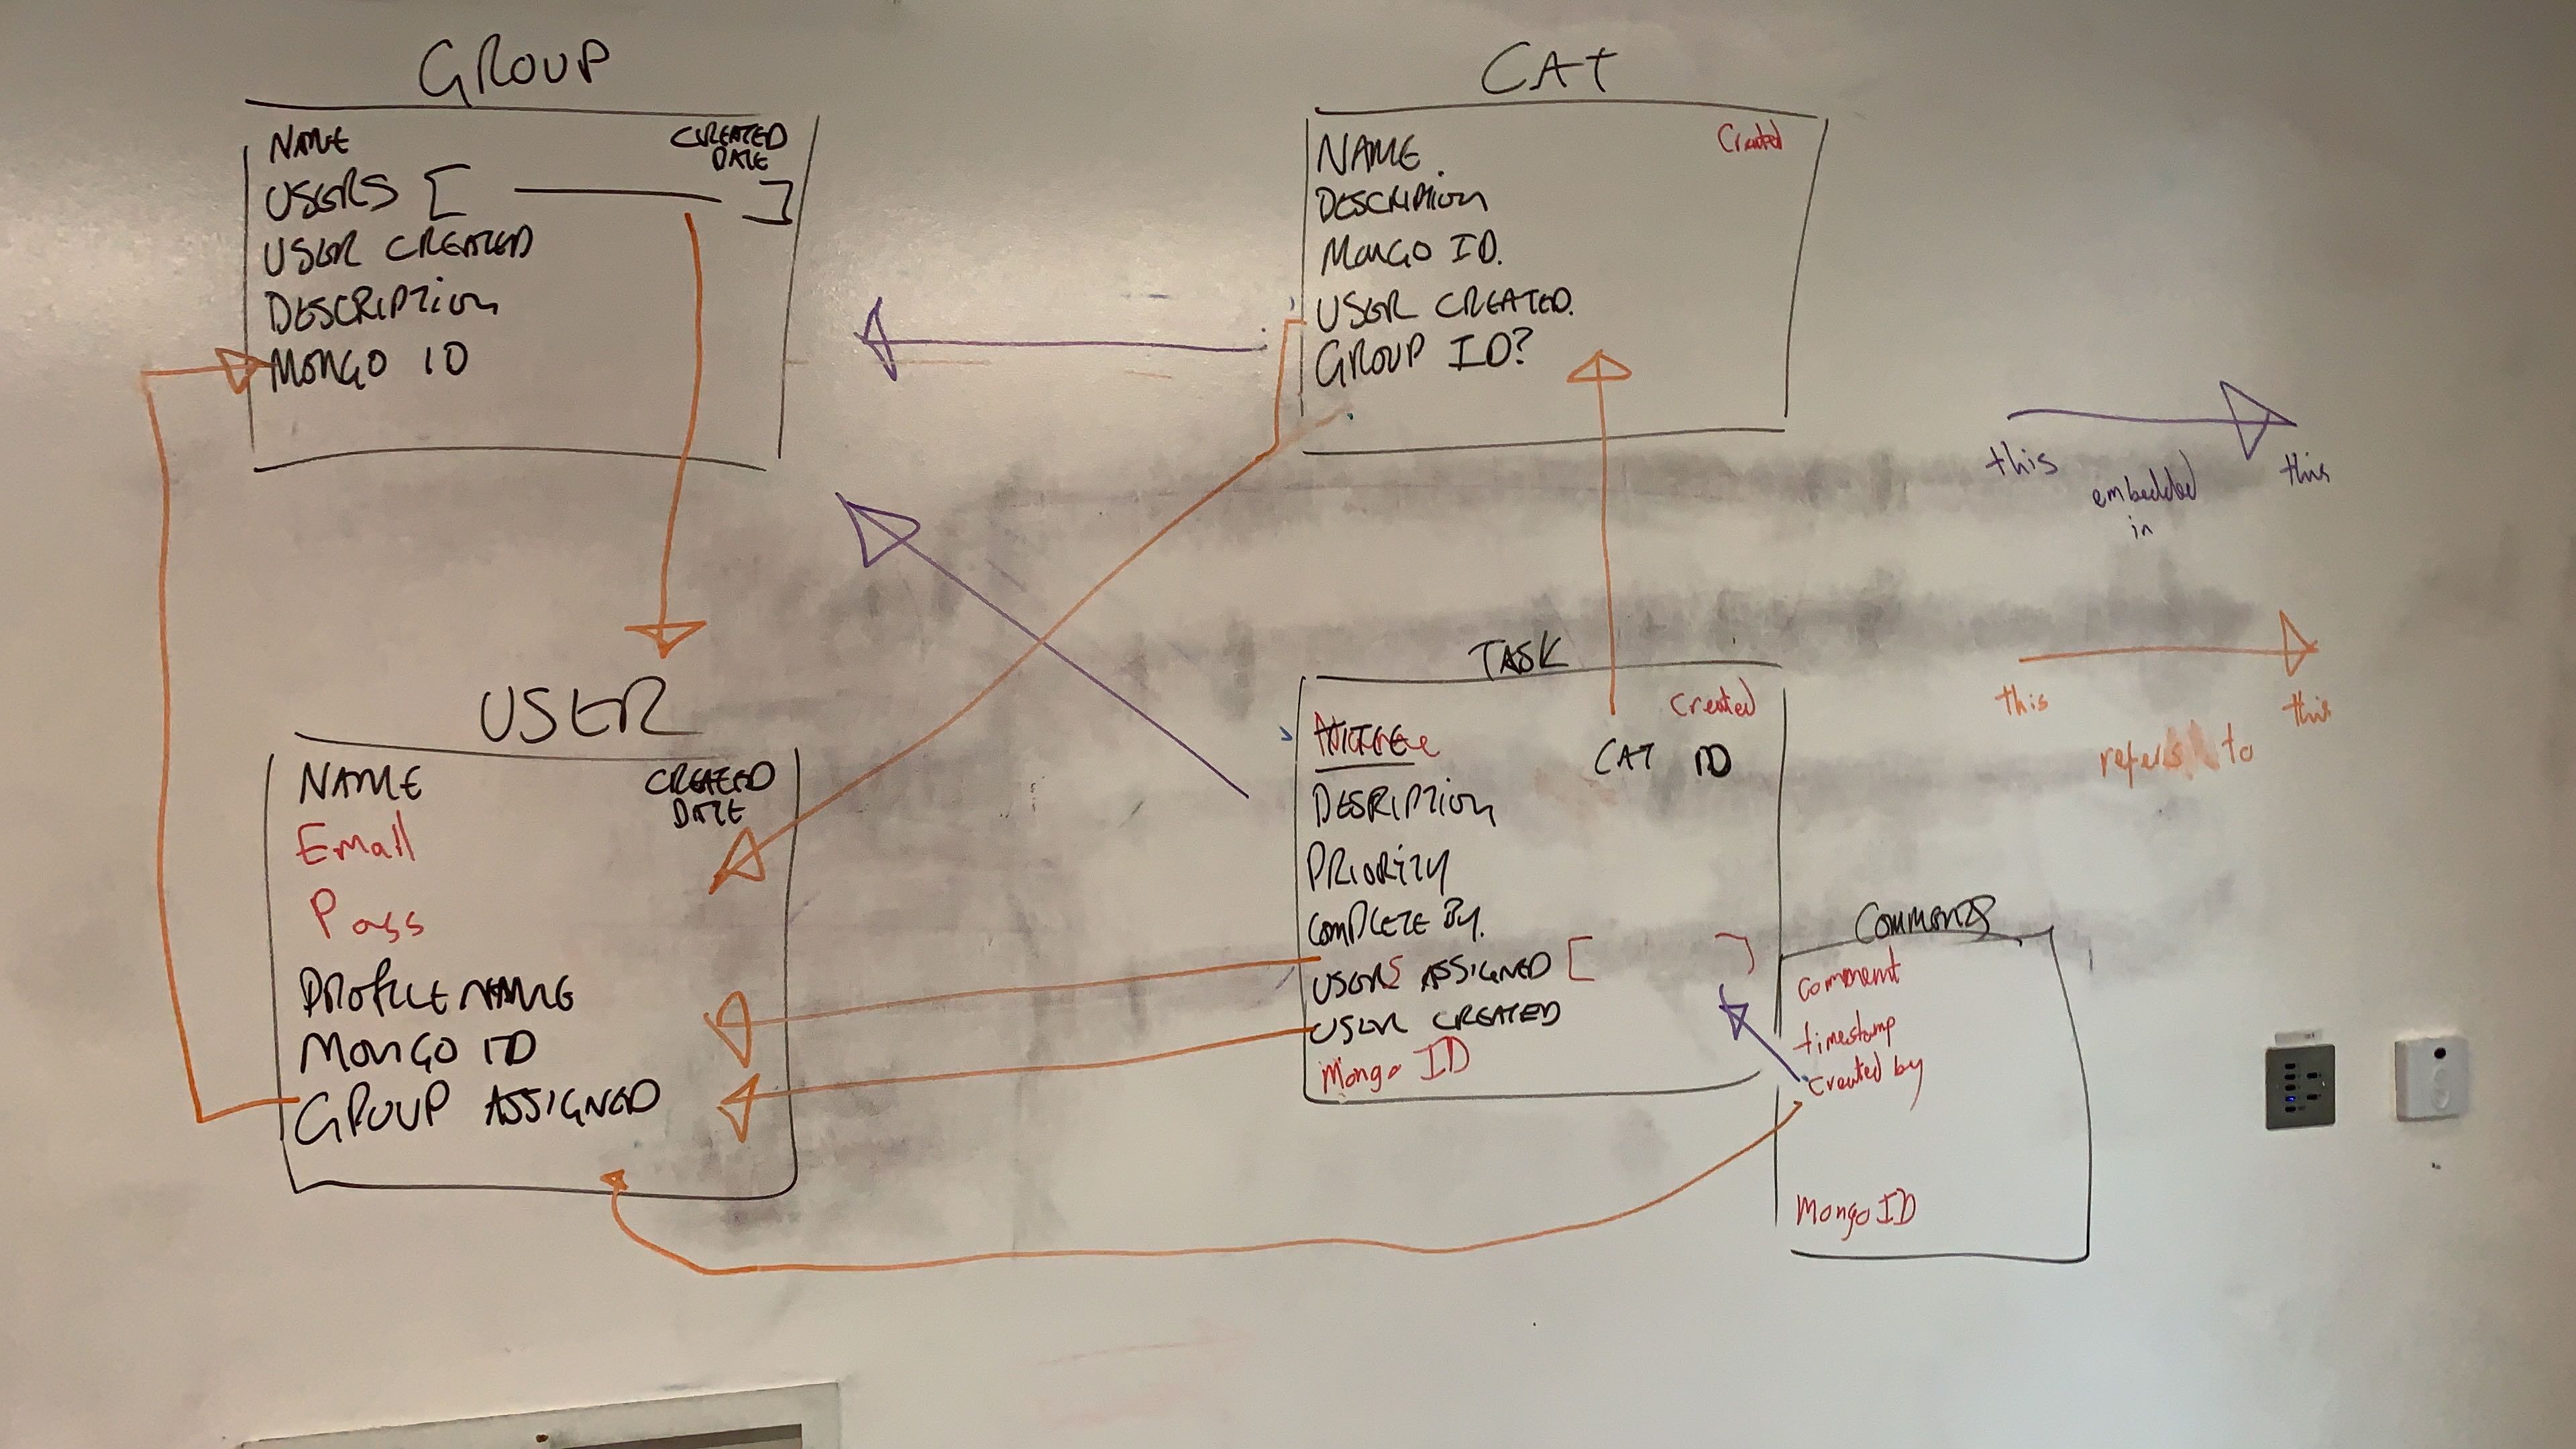 GROUP
NAME
CREATED
DATE
USERS [ ]
USER CREATED
DESCRIPTION
MONGO ID
CAT
NAME
Created
DESCRIPTION
MONGO ID.
USER CREATED.
GROUP ID?
this
embedded
in
this
this
refers to
this
USER
NAME
CREATED
DATE
Email
Pass
PROFILE NAME
MONGO ID
GROUP ASSIGNED
TASK
Created
CAT ID
DESRIPTION
PRIORITY
COMPLETE BY.
USERS ASSIGNED [ ]
USER CREATED
Mongo ID
COMMENTS
comment
timestamp
Created by
Mongo ID